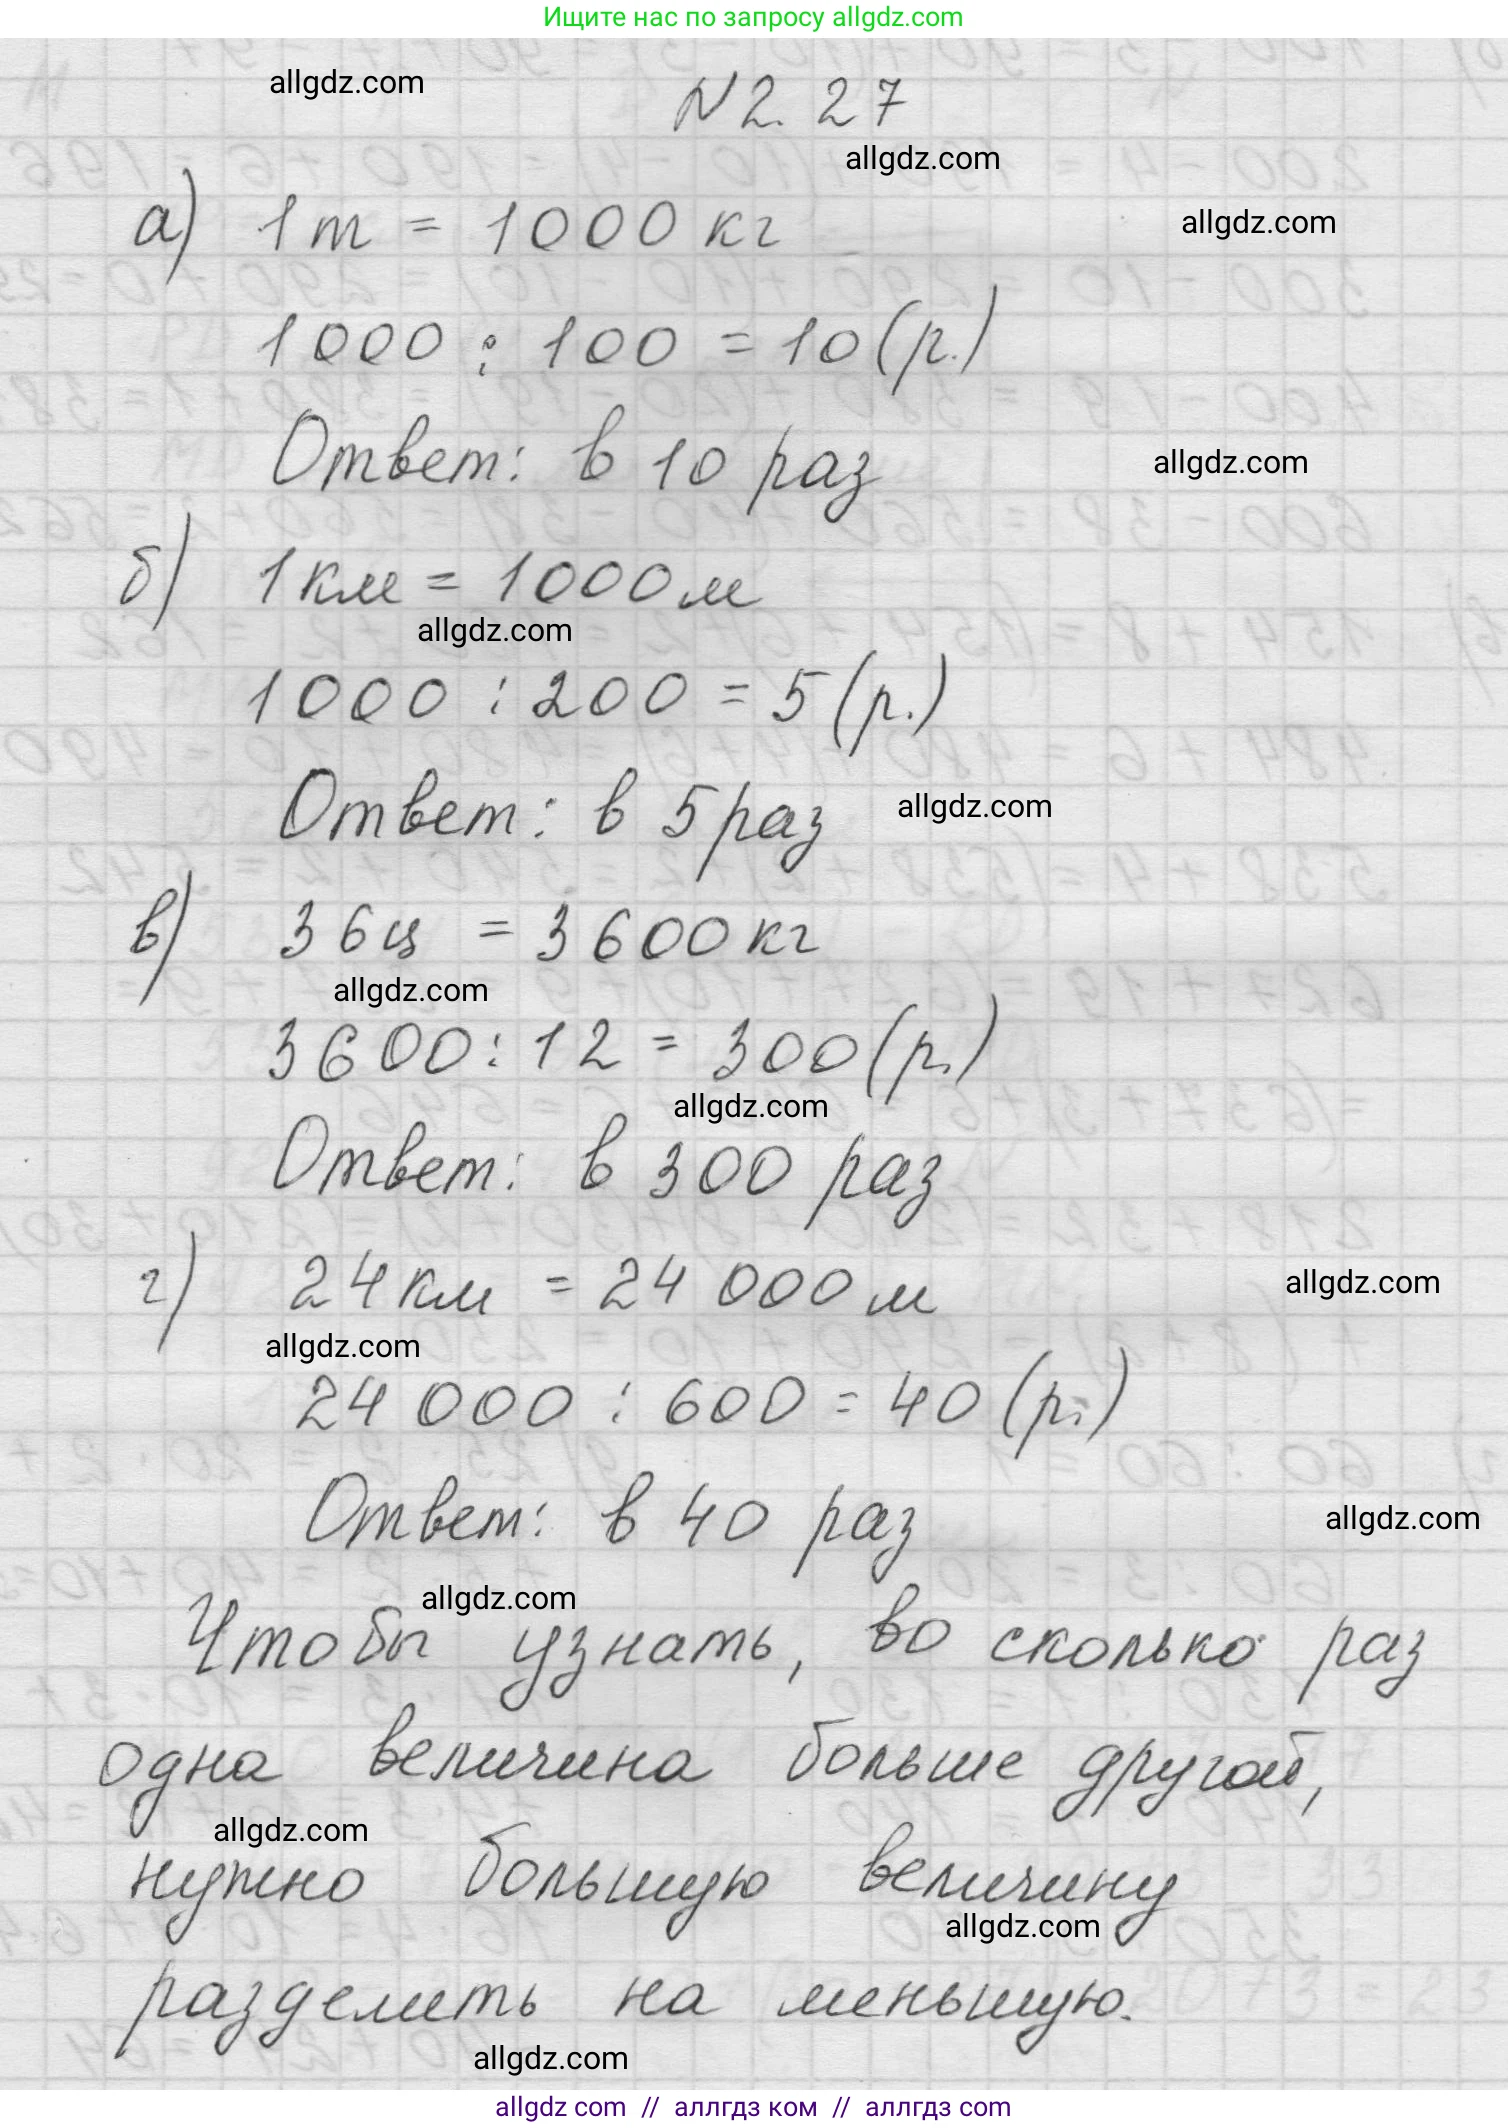 Ищите нас по запросу allgdz.com
allgdz.com
N 2. 27
allgdz.com
а) 1 т = 1000 кг
allgdz.com
1000 : 100 = 10 (р.)
Ответ: в 10 раз
allgdz.com
б) 1 км = 1000 м
allgdz.com
1000 : 200 = 5 (р.)
Ответ: в 5 раз
allgdz.com
в) 36 ц = 3600 кг
allgdz.com
3600 : 12 = 300 (р.)
allgdz.com
Ответ: в 300 раз
г) 24 км = 24 000 м
allgdz.com
allgdz.com
24 000 : 600 = 40 (р.)
Ответ: в 40 раз
allgdz.com
allgdz.com
Чтобы узнать, во сколько раз
одна величина больше другой,
allgdz.com
нужно большую величину
allgdz.com
разделить на меньшую.
allgdz.com
allgdz com // аллгдз ком // аллгдз com